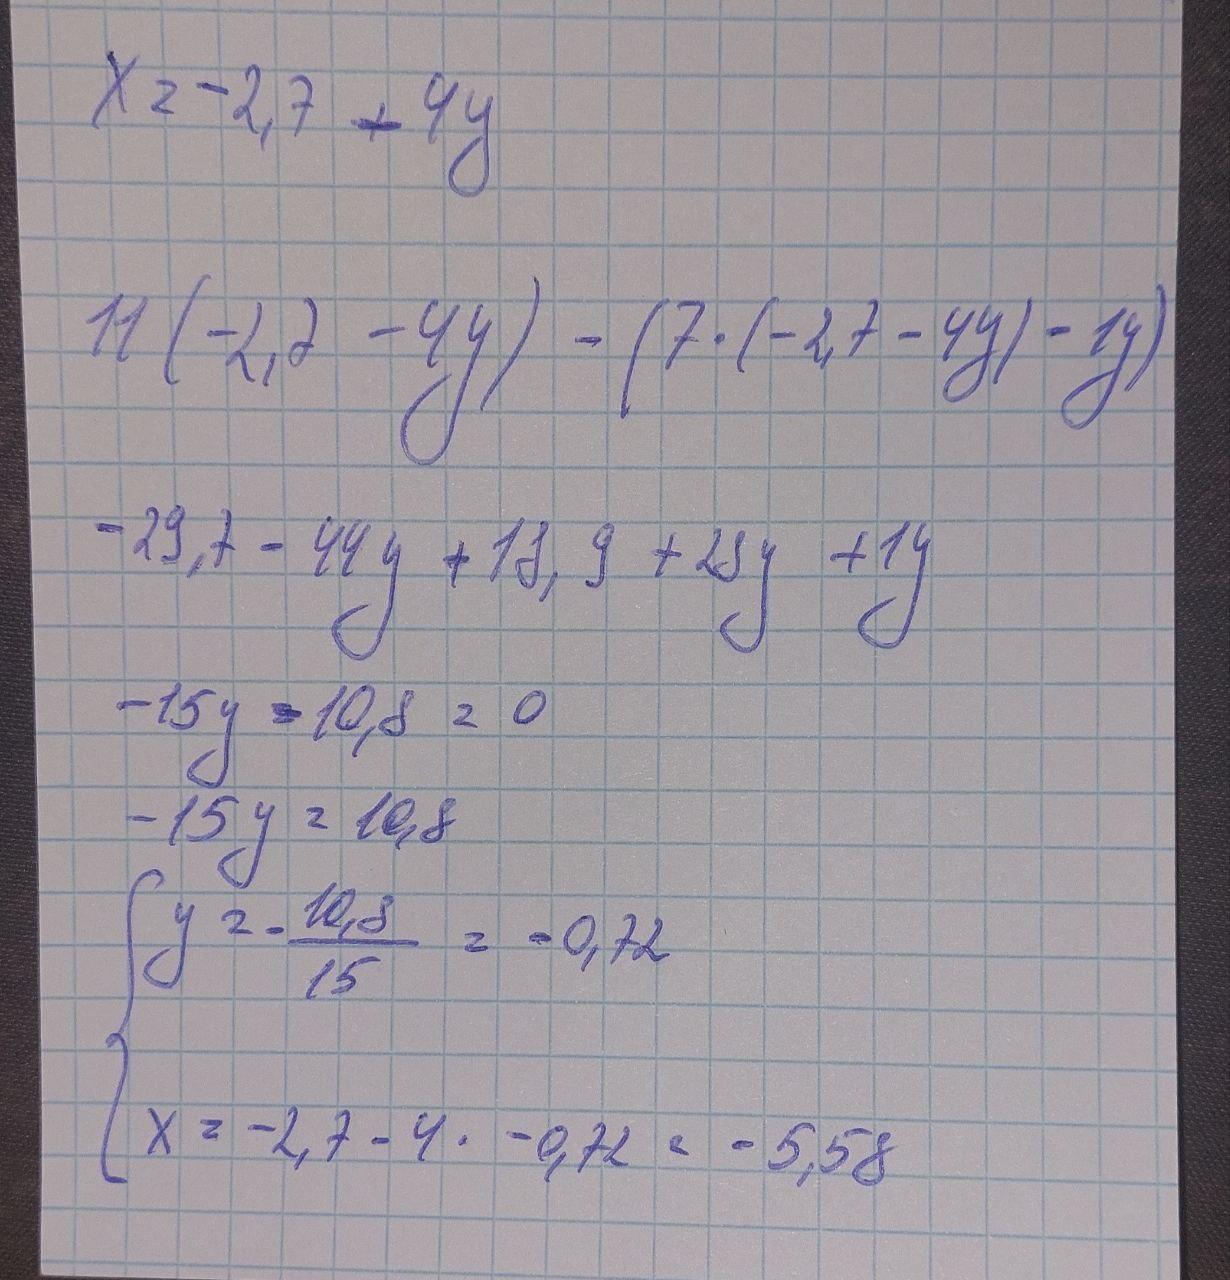 x = -2,7 + 4y
11(-2,7 - 4y) - (7·(-2,7 - 4y) - 1y)
-29,7 - 44y + 18,9 + 28y + 1y
-15y - 10,8 = 0
-15y = 10,8
y = -10,8/15 = -0,72
x = -2,7 - 4 · -0,72 = -5,58